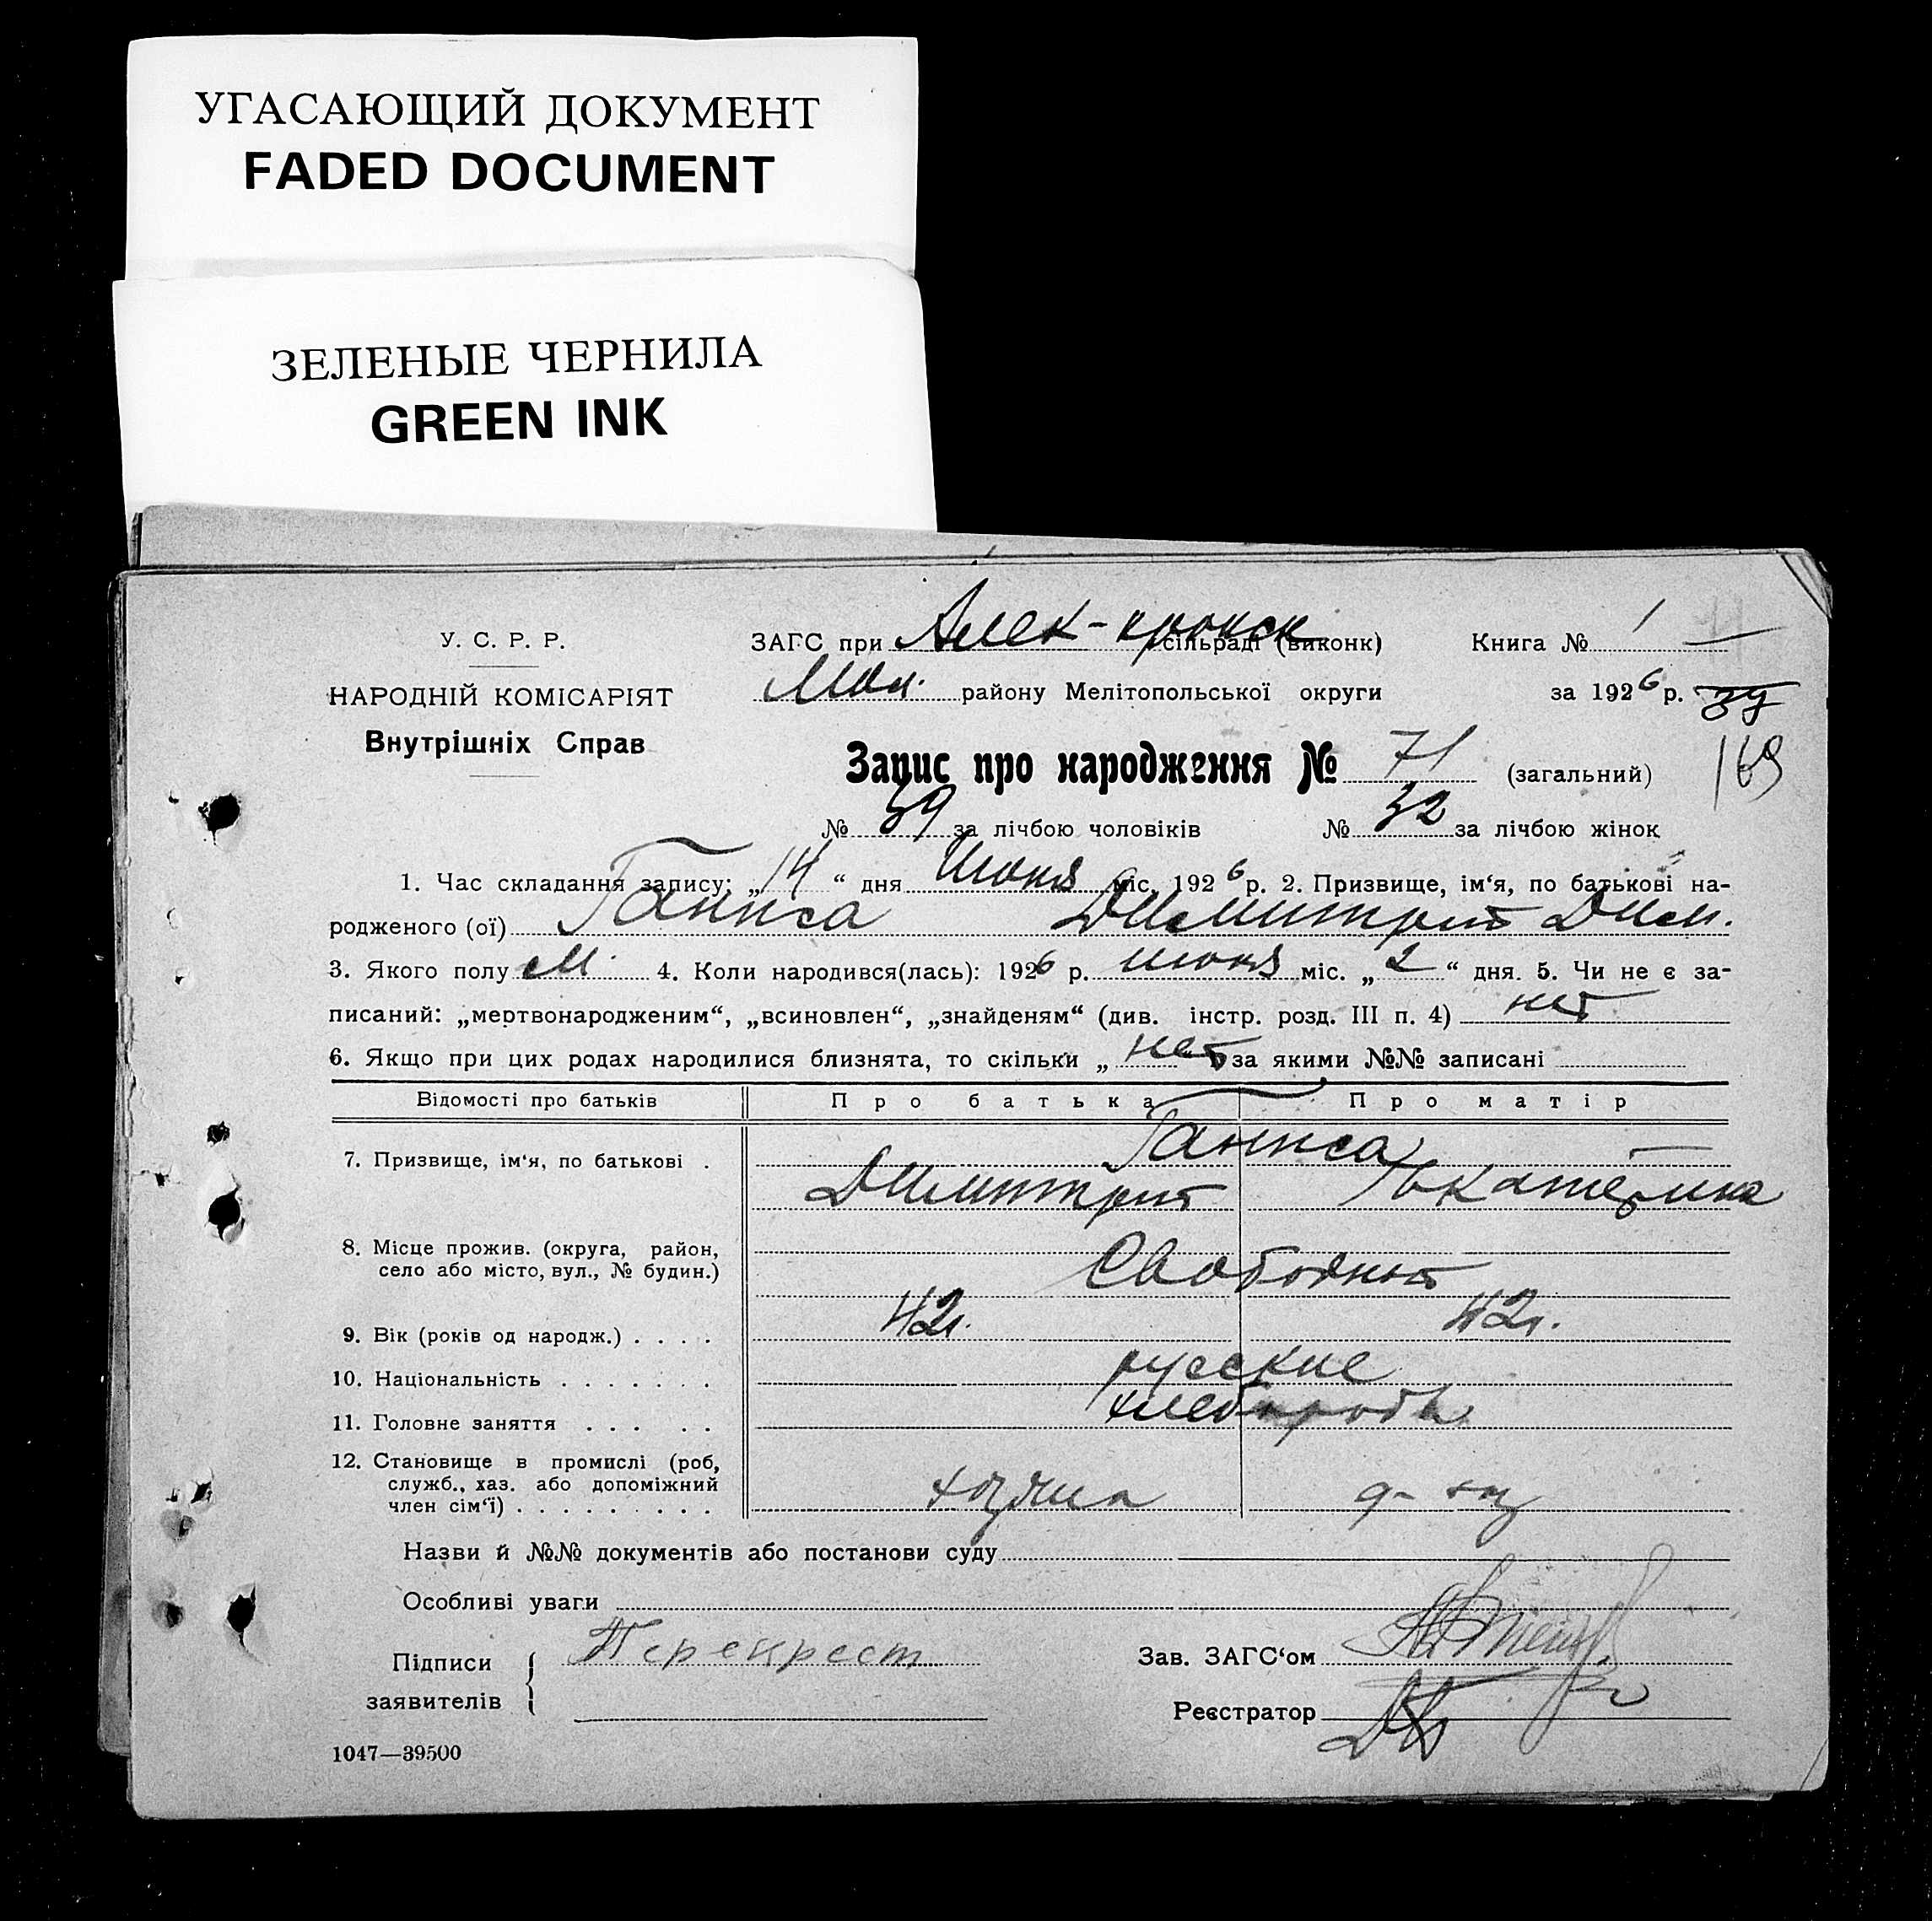 УГАСАЮЩИЙ ДОКУМЕНТ
FADED DOCUMENT
ЗЕЛЕНЫЕ ЧЕРНИЛА
GREEN INK
У. С. Р. Р.
НАРОДНІЙ КОМІСАРІЯТ
Внутрішніх Справ
ЗАГС при Алек- сільраді (виконк) Книга № 1
району Мелітопольської округи за 1926 р. 39
169
Запис про народження № 71 (загальний)
№ 39 за лічбою чоловіків № 32 за лічбою жінок
1. Час складання запису: „14“ дня Июня міс. 1926 р. 2. Призвище, ім‘я, по батькові на-
родженого (ої) Димитрий Дим.
3. Якого полу М. 4. Коли народився(лась): 1926 р. июня міс. „2“ дня. 5. Чи не є за-
писаний: „мертвонародженим“, „всиновлен“, „знайденям“ (див. інстр. розд. III п. 4) нет
6. Якщо при цих родах народилися близнята, то скільки „нет за якими №№ записані
Відомості про батьків Про батька Про матір
7. Призвище, ім‘я, по батькові .
Димитрий Екатерина
8. Місце прожив. (округа, район,
село або місто, вул., № будин.) Свободный
9. Вік (років од народж.) . . . . 42 г. 42 г.
10. Національність . . . . . . . русские
11. Головне заняття . . . . . хлебороб
12. Становище в промислі (роб,
служб., хаз. або допоміжний
член сім‘ї) . . . . . . . . . хозяин д- хоз
Назви й №№ документів або постанови суду
Особливі уваги
Підписи
заявителів
Перекрест
Зав. ЗАГС‘ом
Реєстратор
1047—39500